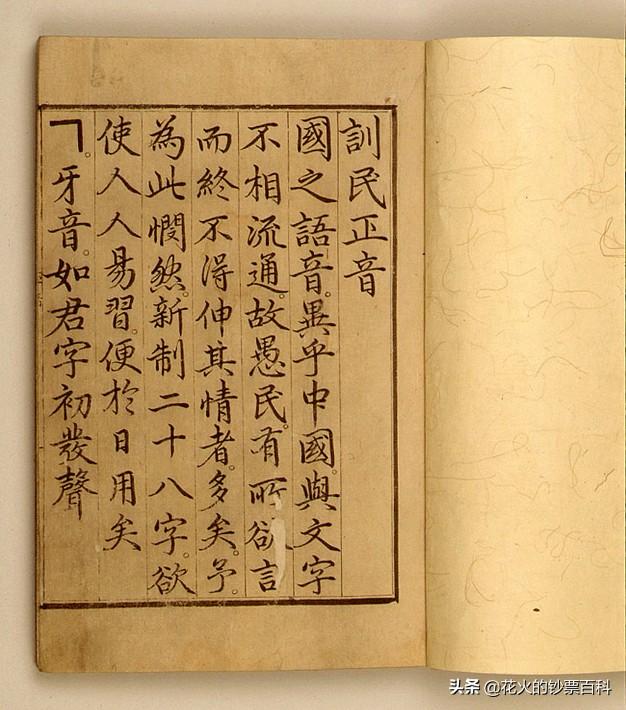 訓民正音
國之語音。異乎中國。與文字
不相流通。故愚民。有所欲言
而終不得伸其情者。多矣。予。
為此憫然。新制二十八字。欲
使人人易習。便於日用矣
ㄱ。牙音。如君字初發聲
头条 @花火的钞票百科